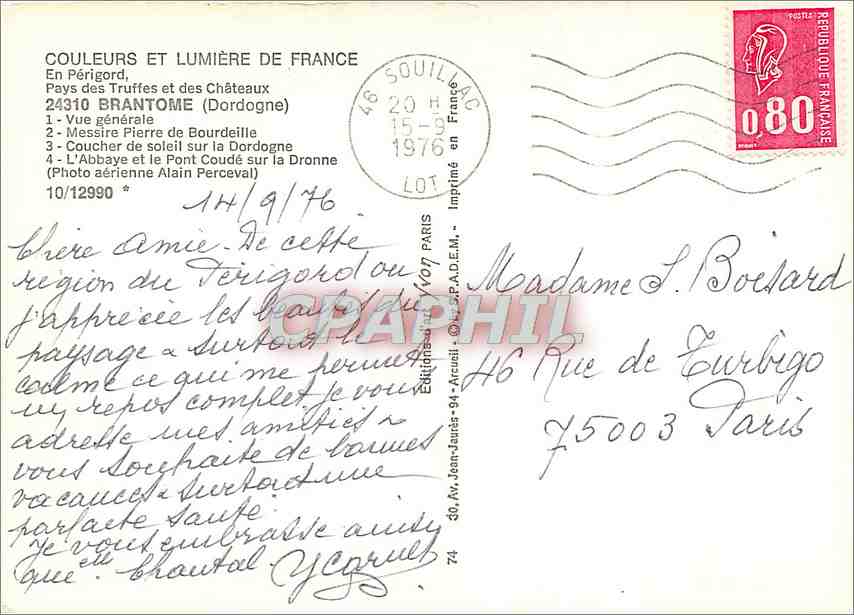 COULEURS ET LUMIÈRE DE FRANCE
En Périgord,
Pays des Truffes et des Châteaux
24310 BRANTOME (Dordogne)
1 - Vue générale
2 - Messire Pierre de Bourdeille
3 - Coucher de soleil sur la Dordogne
4 - L'Abbaye et le Pont Coudé sur la Dronne
(Photo aérienne Alain Perceval)
10/12990 *
46 SOUILLAC
20 H
15-9
1976
LOT
POSTES
REPUBLIQUE FRANÇAISE
0,80
14/9/76
Chère Amie - De cette
région du Périgord ou
j'apprécie les beautés du
paysage & surtout le
calme ce qui me permet
un repos complet je vous
adresse mes amitiés &
vous souhaite de bonnes
vacances & surtout une
parfaite santé.
Je vous embrasse ainsi
que Chantal
Editions d'art Yvon PARIS
30, Av. Jean-Jaurès - 94 - Arcueil - © by S.P.A.D.E.M. - Imprimé en France
74
CPAPHIL
Madame S. Boisard
46 Rue de Turbigo
75003 Paris